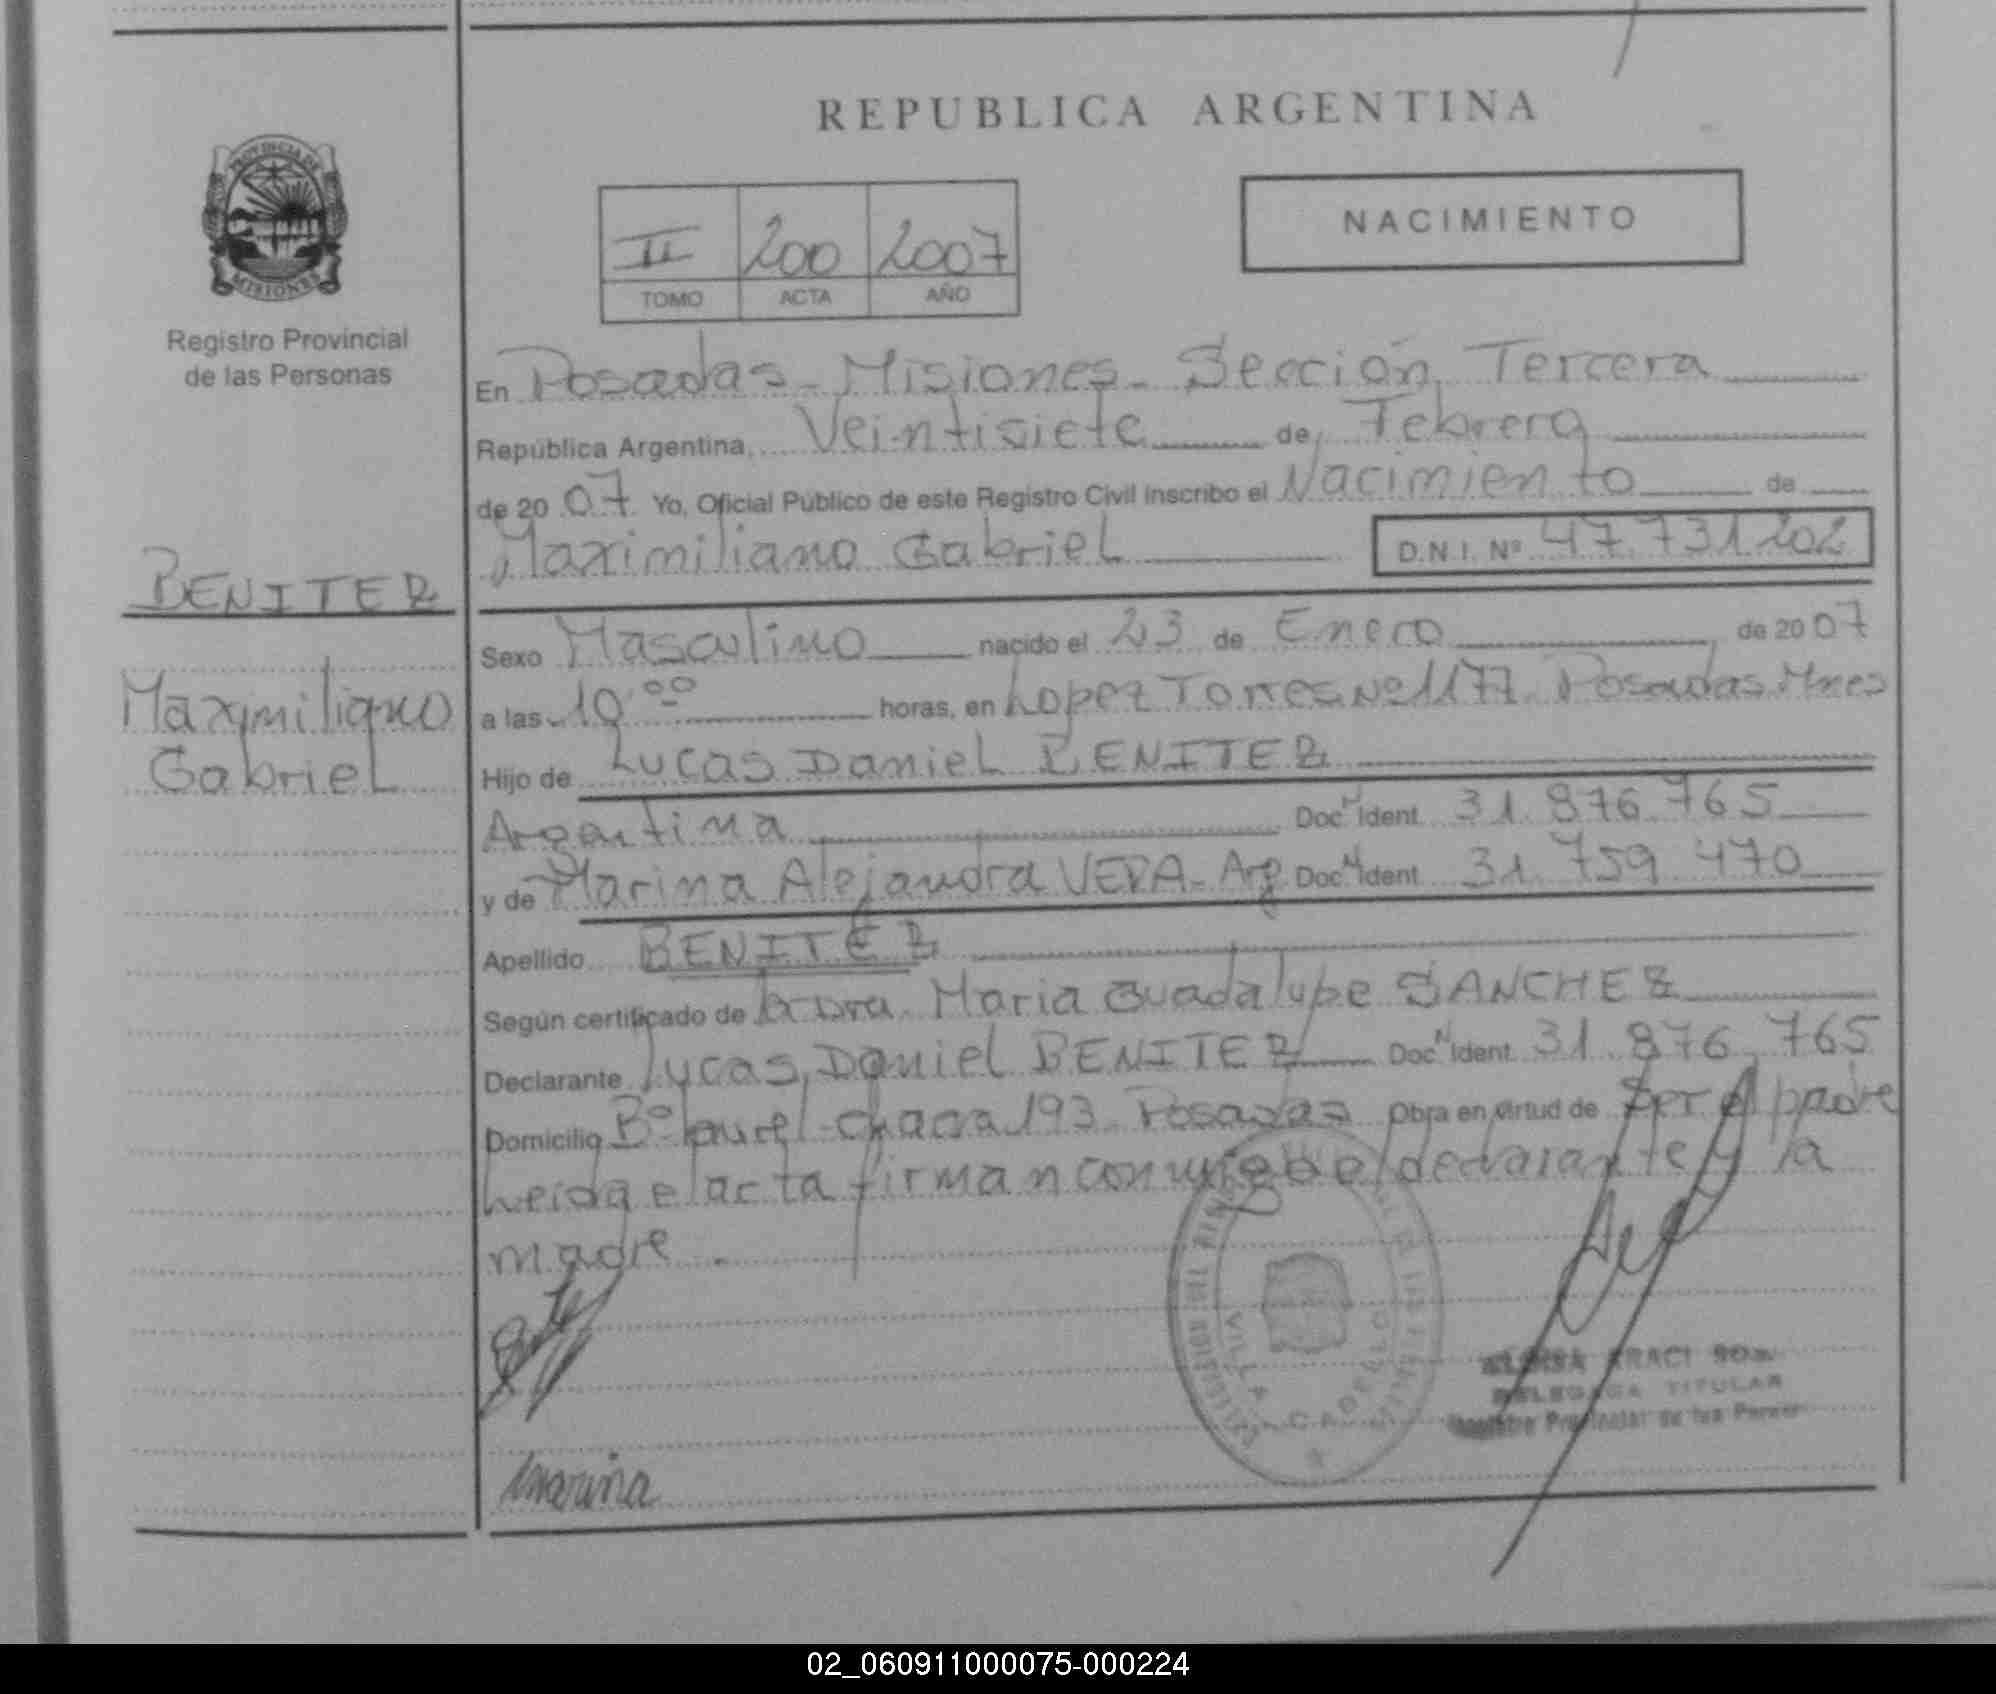 REPUBLICA ARGENTINA
PROVINCIA DE
MISIONES
Registro Provincial
de las Personas
NACIMIENTO
II 200 2007
TOMO ACTA AÑO
En Posadas - Misiones - Sección Tercera
República Argentina, Veintisiete de Febrero
de 2007 Yo, Oficial Público de este Registro Civil inscribo el Nacimiento de
Maximiliano Gabriel D.N.I. Nº 47.731.202
BENITEZ
Sexo Masculino nacido el 23 de Enero de 2007
Maximiliano
Gabriel
a las 10:00 horas, en Lopez Torres Nº 1177 Posadas Mnes
Hijo de Lucas Daniel BENITEZ
Argentina Doc N Ident 31.876.765
y de Marina Alejandra VERA - Arg Doc N Ident 31.759.470
Apellido BENITEZ
Según certificado de la Dra. Maria Guadalupe SANCHEZ
Declarante Lucas Daniel BENITEZ Doc N Ident 31.876.765
Domicilio Bº Laurel - Chacra 193 - Posadas Obra en virtud de ser el padre
Leida el acta firman conmigo el declarante y la
madre.
VILLA CABELLO
DELEGADA TITULAR
Registro Provincial de las Personas
Marina
02_060911000075-000224